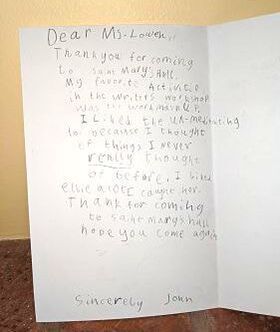 Dear Ms. Lowen,
Thank you for coming
to saint Mary's Hall.
My favorite Activitie
in the writers workshop
was the word
I Liked the un-meditating
to because I thought
of things I never
really thought
of before. I liked
ellie alot I caught her.
Thank for coming
to saint marys hall
hope you come again
Sincerely John